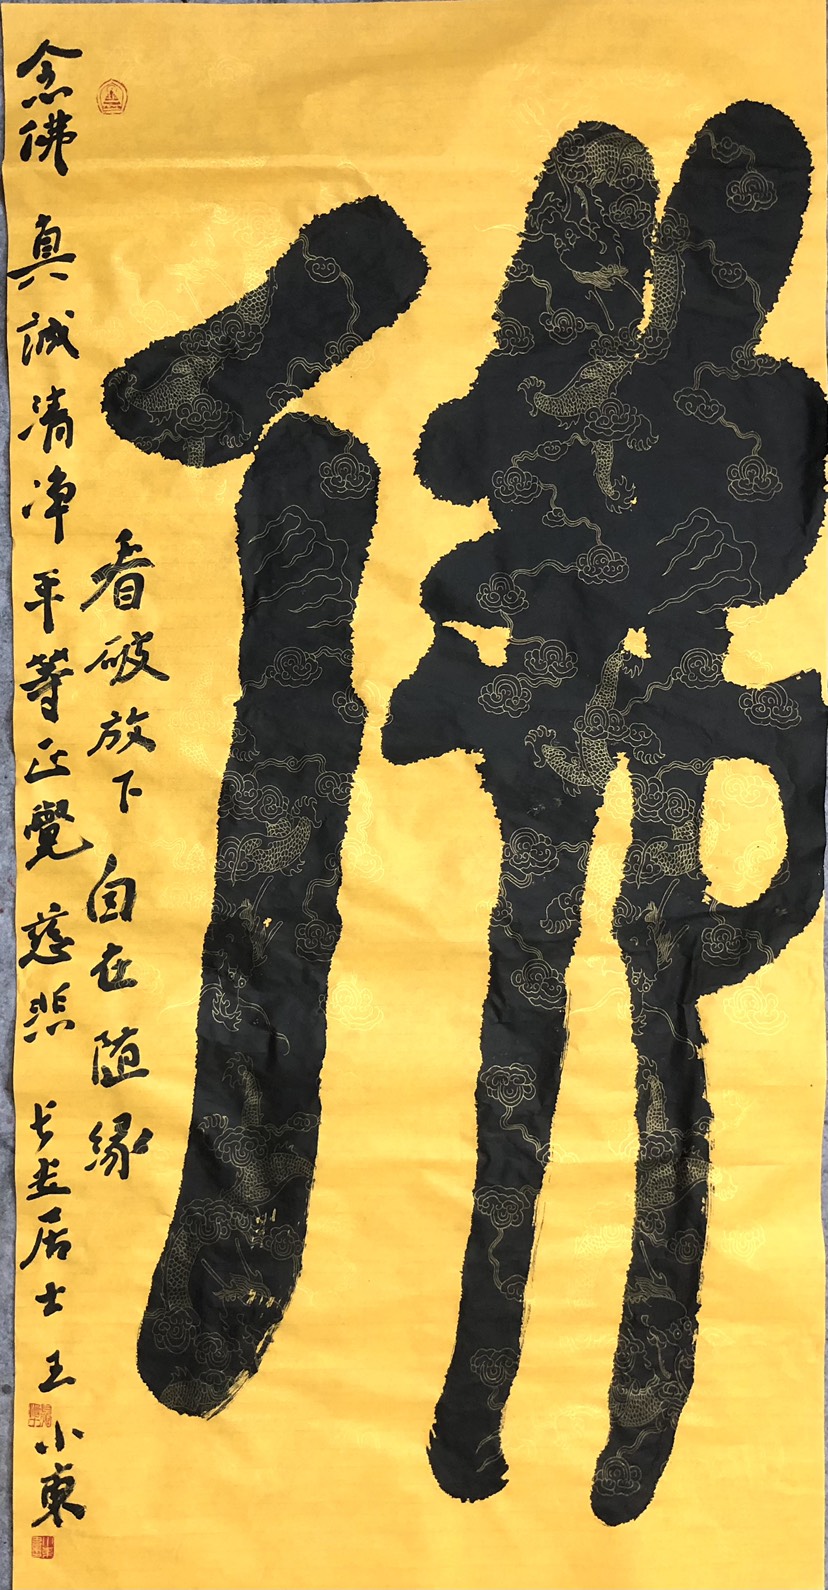 佛
看破放下 自在随缘
念佛 真誠清净平等正覺 慈悲 长居士 王小東